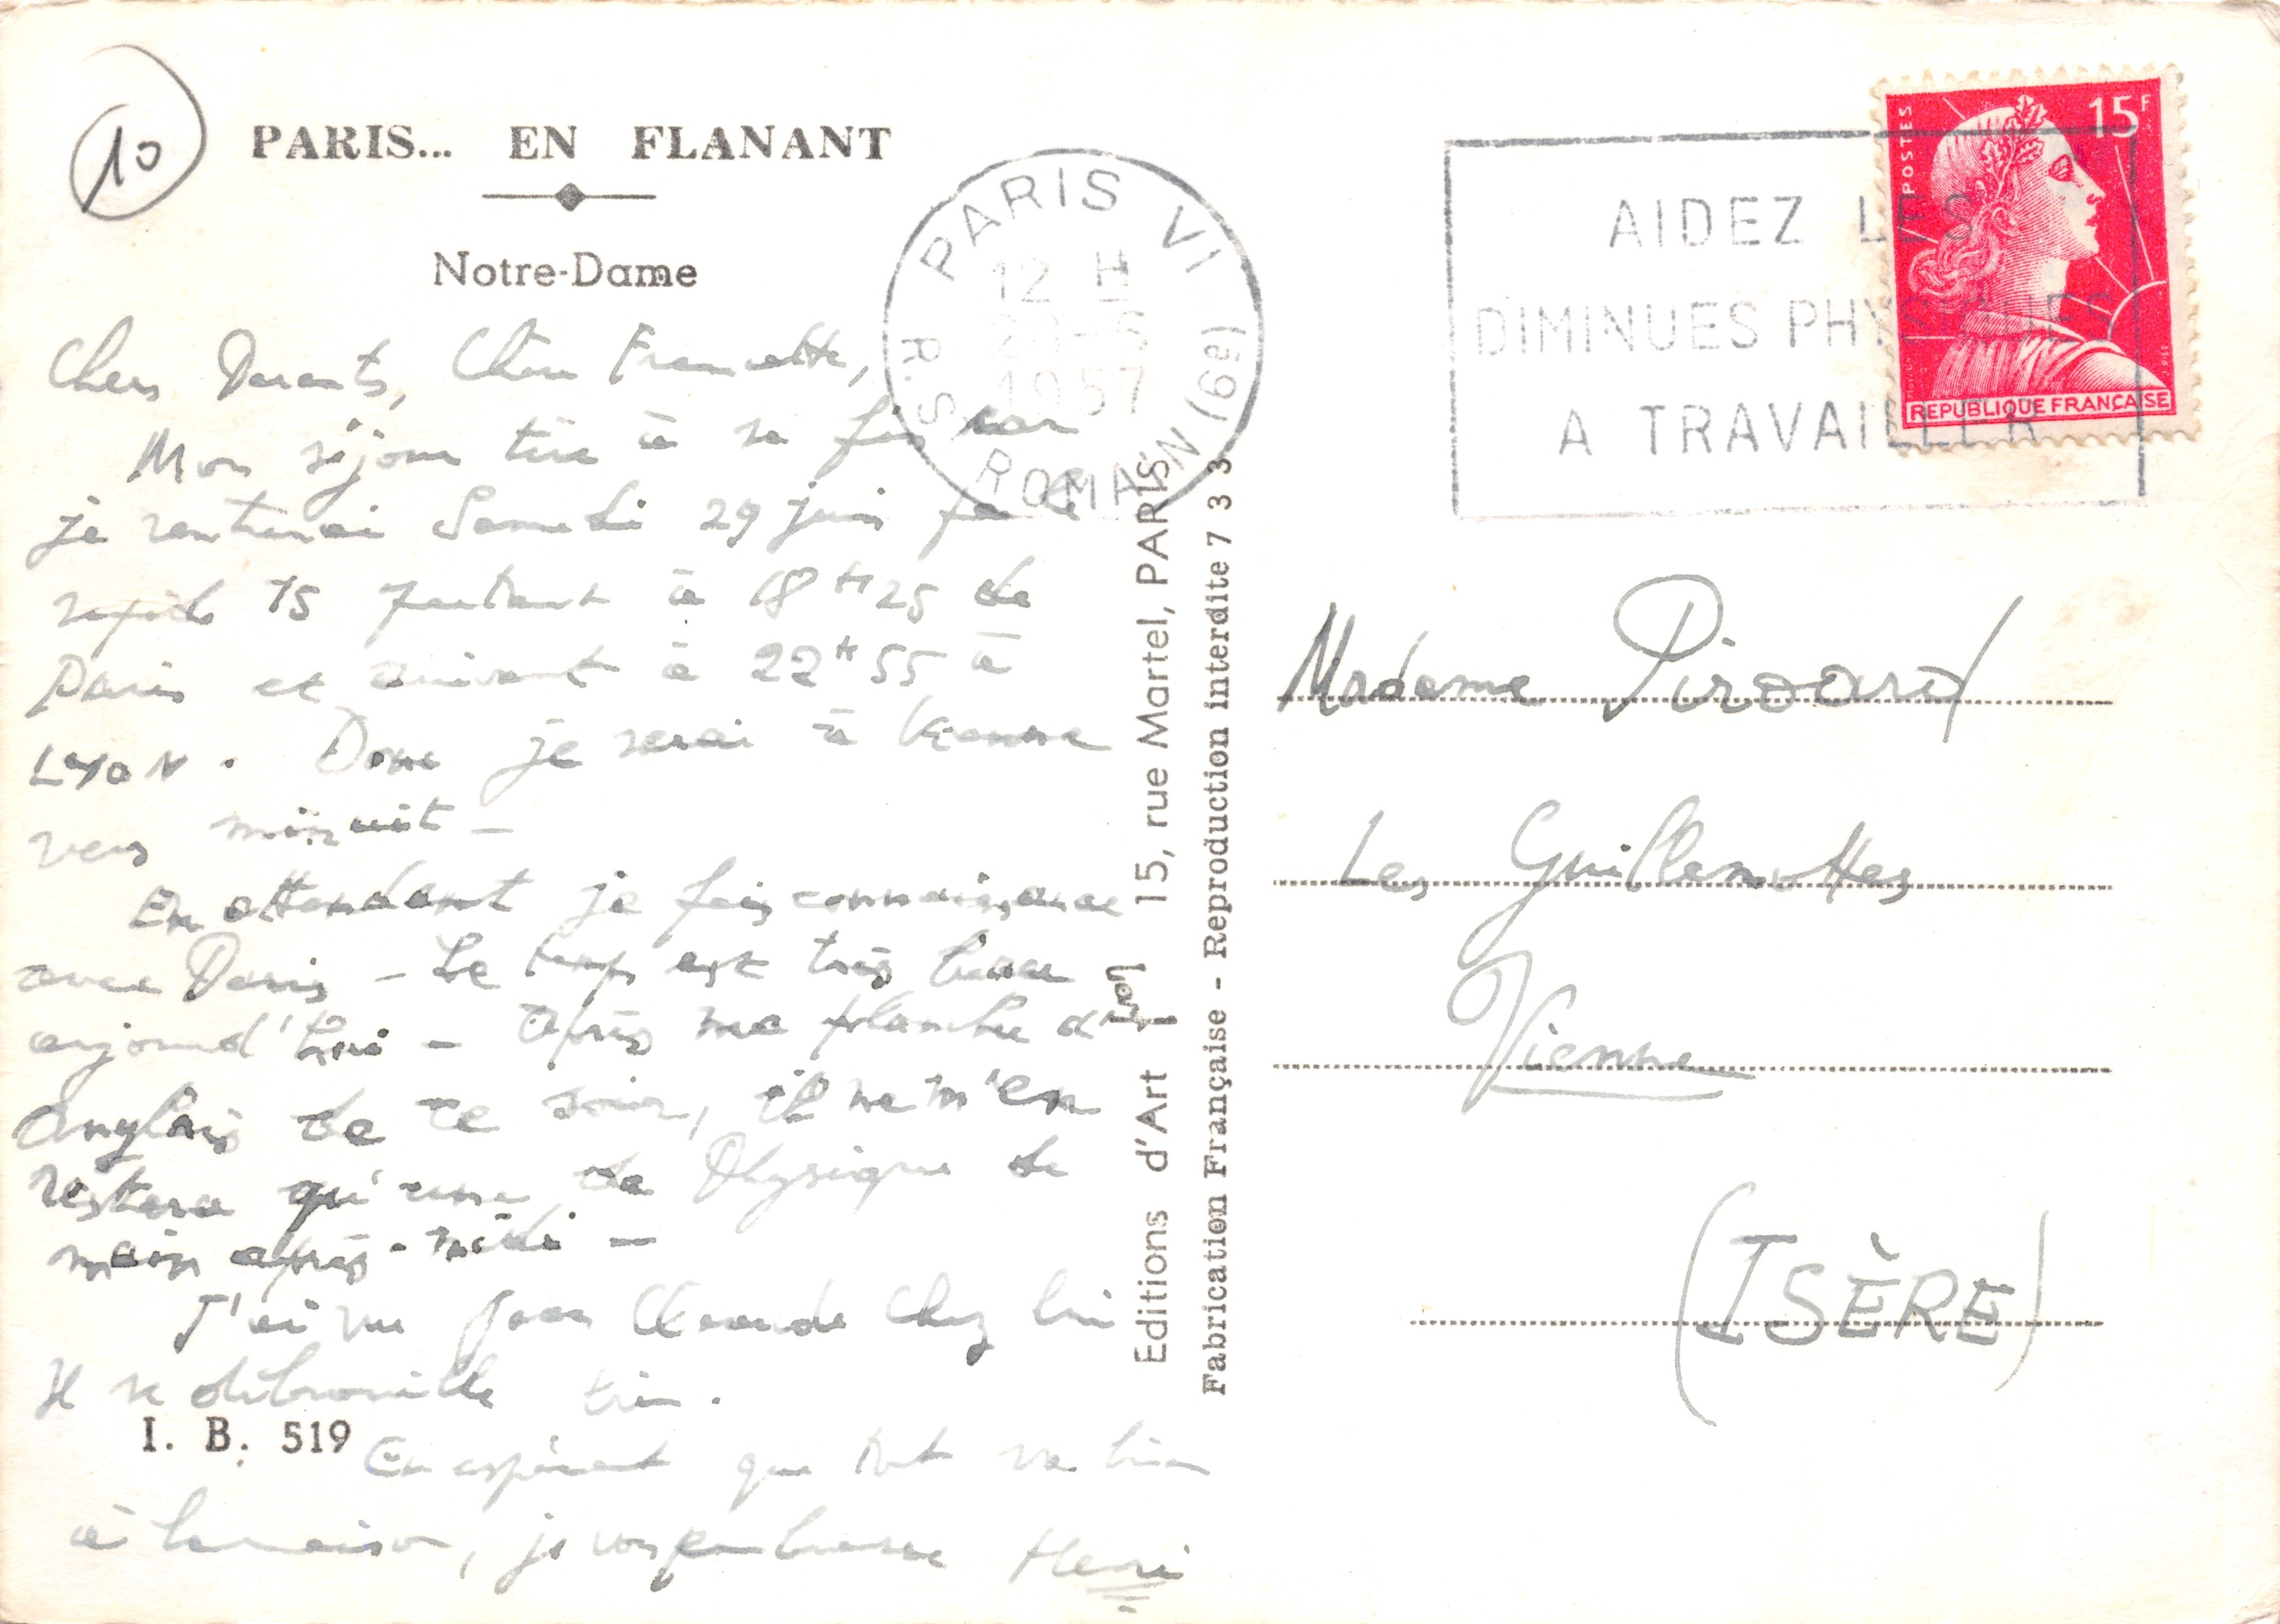 10
PARIS... EN FLANANT
Notre-Dame
Chers Parents, Chère Francette,
Mon séjour tire à sa fin car
je rentrerai Samedi 29 juin par le
rapide 75 partant à 18H25 de
Paris et arrivant à 22H55 à
LYON. Donc je serai à Vienne
vers minuit -
En attendant je fais connaissance
avec Paris - Le temps est très beau
aujourd'hui - Après ma planche d'
Anglais de ce soir, il ne m'en
restera qu'une de Physique de
main après-midi -
J'ai vu Jean Claude chez lui
Il se débrouille bien.
I. B. 519
En espérant que tout va bien
à la maison, je vous embrasse Henri
PARIS VI
12 H
1957
R. S ROMAIN (6e)
Editions d'Art 15, rue Martel, PARIS
Fabrication Française - Reproduction interdite 733
AIDEZ LES
DIMINUES PHYSIQUES
A TRAVAILLER
POSTES
15F
REPUBLIQUE FRANÇAISE
Madame
Les Guillemottes
Vienne
(ISÈRE)